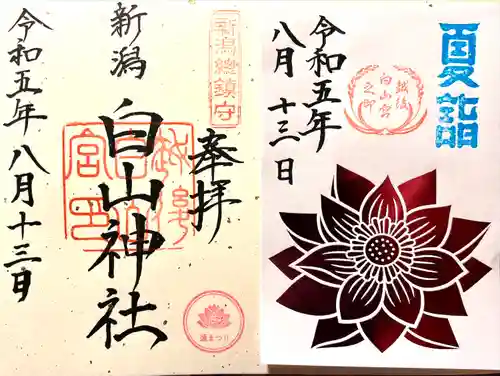 夏詣
令和五年
八月十三日
越後
白山宮
之印
新潟總鎮守
奉拝
新潟
白山神社
越後
白山
宮印
蓮まつり
令和五年八月十三日